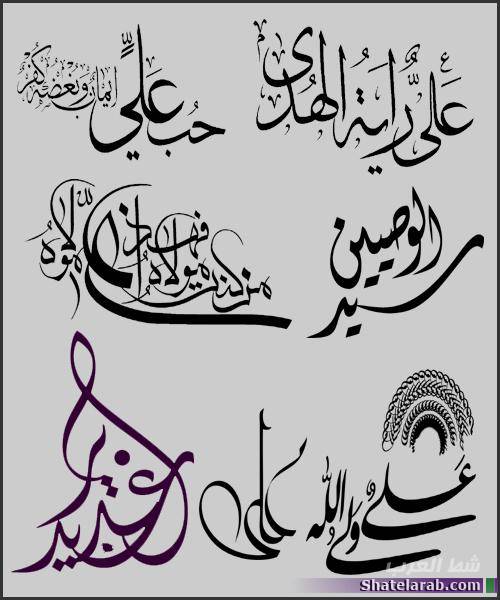 عَلِيٌّ رَايَةُ الهُدَى
حُب عَلِيٍّ ايمان وبغضه كفر
سيد الوصيين
من كنت مولاه فهذا علي مولاه
عَلي وَلي الله
علي
غدير
شط العرب
Shatelarab.com